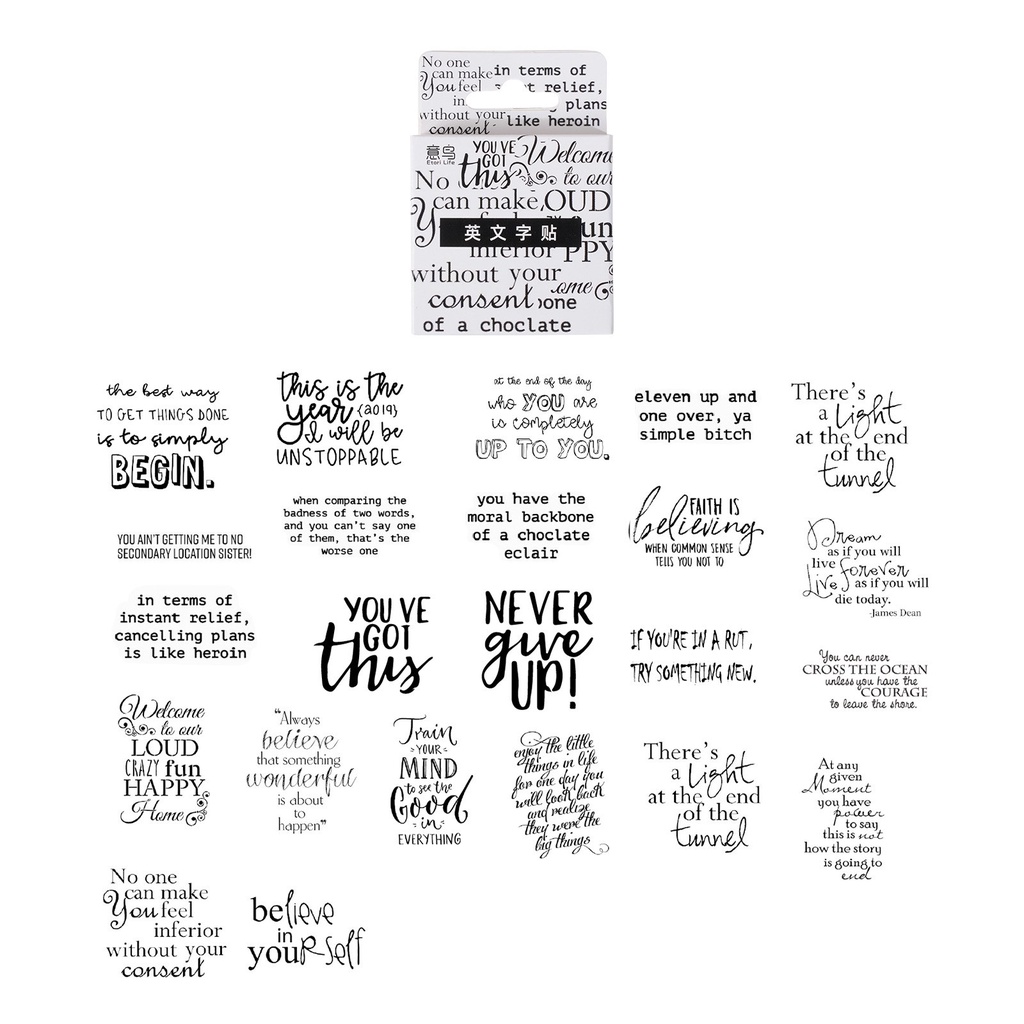 No one
can make
You feel
in
without your
consent
in terms of
relief,
plans
like heroin
意鸟
Etori Life
YOU'VE
GOT
this
Welcome
to our
No
can make
LOUD
fun
英文字贴
inferior
PPY
without your
ome
consent
bone
of a choclate
the best way
TO GET THINGS DONE
is to simply
BEGIN.
this is the
year {2019}
I will be
UNSTOPPABLE
at the end of the day
who YOU are
is completely
UP TO YOU.
eleven up and
one over, ya
simple bitch
There's
a Light
at the end
of the
tunnel
YOU AIN'T GETTING ME TO NO
SECONDARY LOCATION SISTER!
when comparing the
badness of two words,
and you can't say one
of them, that's the
worse one
you have the
moral backbone
of a choclate
eclair
FAITH IS
believing
WHEN COMMON SENSE
TELLS YOU NOT TO
Dream
as if you will
live forever
Live as if you will
die today.
-James Dean
in terms of
instant relief,
cancelling plans
is like heroin
YOU'VE
GOT
this
NEVER
give
UP!
IF YOU'RE IN A RUT,
TRY SOMETHING NEW.
You can never
CROSS THE OCEAN
unless you have the
COURAGE
to leave the shore.
Welcome
to our
LOUD
CRAZY fun
HAPPY
Home
"Always
believe
that something
wonderful
is about
to
happen"
Train
YOUR
MIND
to see the
Good
in
EVERYTHING
enjoy the little
things in life
for one day you
will look back
and realize
they were the
big things
There's
a Light
at the end
of the
tunnel
At any
given
Moment
you have
power
to say
this is not
how the story
is going to
end
No one
can make
You feel
inferior
without your
consent
believe
in
yourself